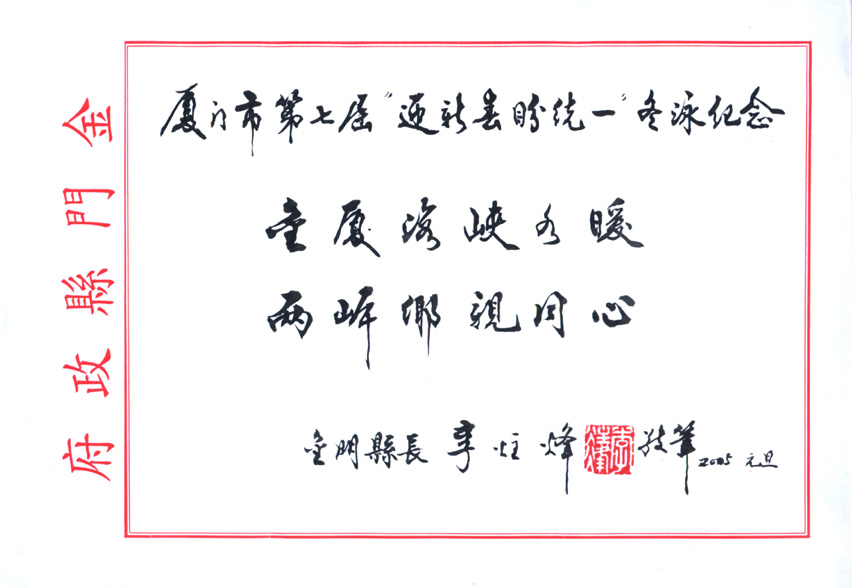 金門縣政府
厦门市第七届“迎新春盼统一”冬泳纪念
金厦海峡水暖
两岸鄉親同心
金門縣長 李炷烽 敬筆 2005 元旦